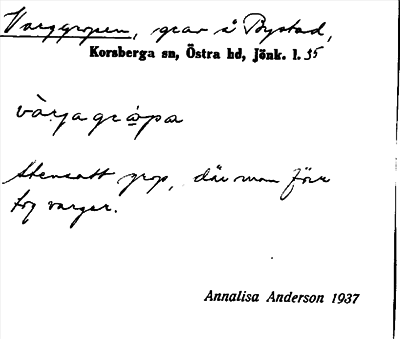 Varggropen, grav å Bystad,
Korsberga sn, Östra hd, Jönk. l. 35
vàrjagrópa
Stensatt grop, där man förr
tog vargar.
Annalisa Anderson 1937